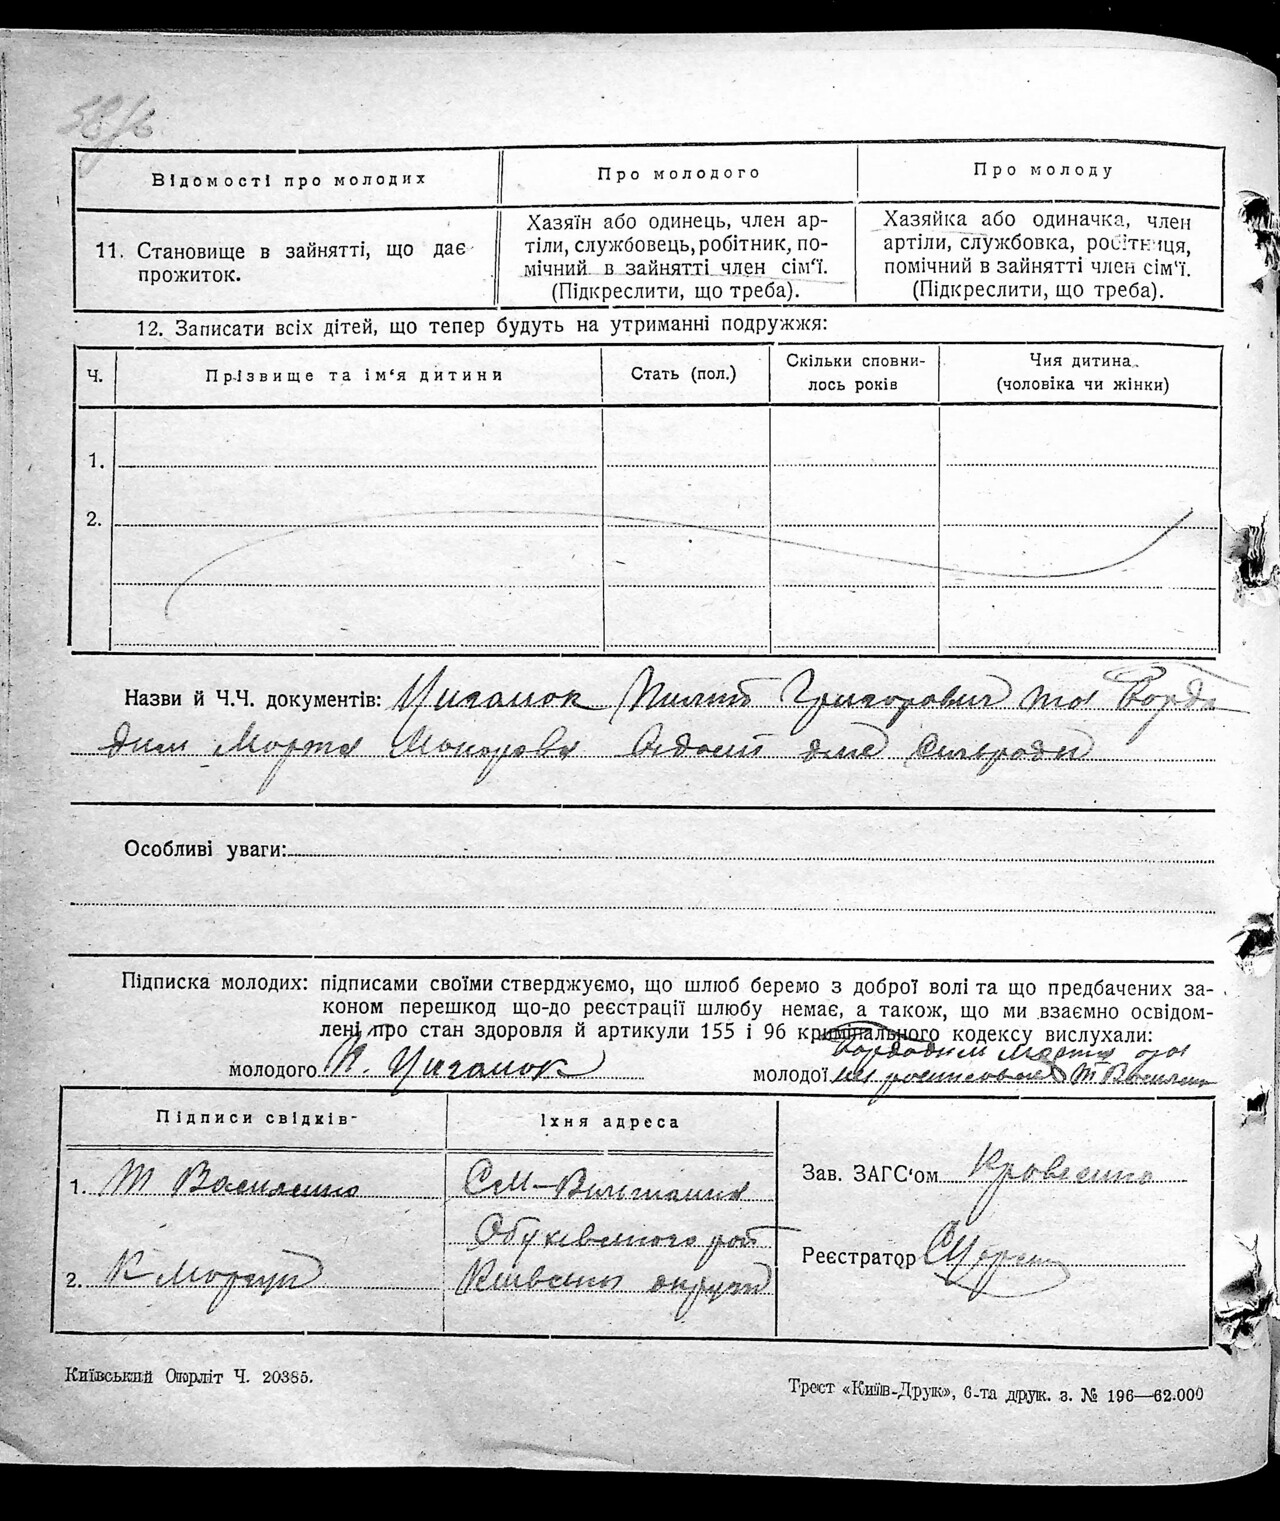 Відомості про молодих
Про молодого
Про молоду
11. Становище в зайнятті, що дає
прожиток.
Хазяїн або одинець, член ар-
тіли, службовець, робітник, по-
мічний в зайнятті член сім'ї.
(Підкреслити, що треба).
Хазяйка або одиначка, член
артіли, службовка, робітниця,
помічний в зайнятті член сім'ї.
(Підкреслити, що треба).
12. Записати всіх дітей, що тепер будуть на утриманні подружжя:
Ч.
Прізвище та ім'я дитини
Стать (пол.)
Скільки сповни-
лось років
Чия дитина
(чоловіка чи жінки)
1.
2.
Назви й Ч.Ч. документів: Циганок Пилип Григорович та Борда
дим Марта Макарова
Особливі уваги:
Підписка молодих: підписами своїми стверджуємо, що шлюб беремо з доброї волі та що предбачених за-
коном перешкод що-до реєстрації шлюбу немає, а також, що ми взаємно освідом-
лені про стан здоровля й артикули 155 і 96 кримінального кодексу вислухали:
молодого П. Циганок
молодої Марта
Підписи свідків
Їхня адреса
1. Т Василенко
2. К Моргун
Обухівського
Київської округи
Зав. ЗАГС'ом
Реєстратор
Київський Окрліт Ч. 20385.
Трест «Київ-Друк», 6-та друк. з. № 196—62.000